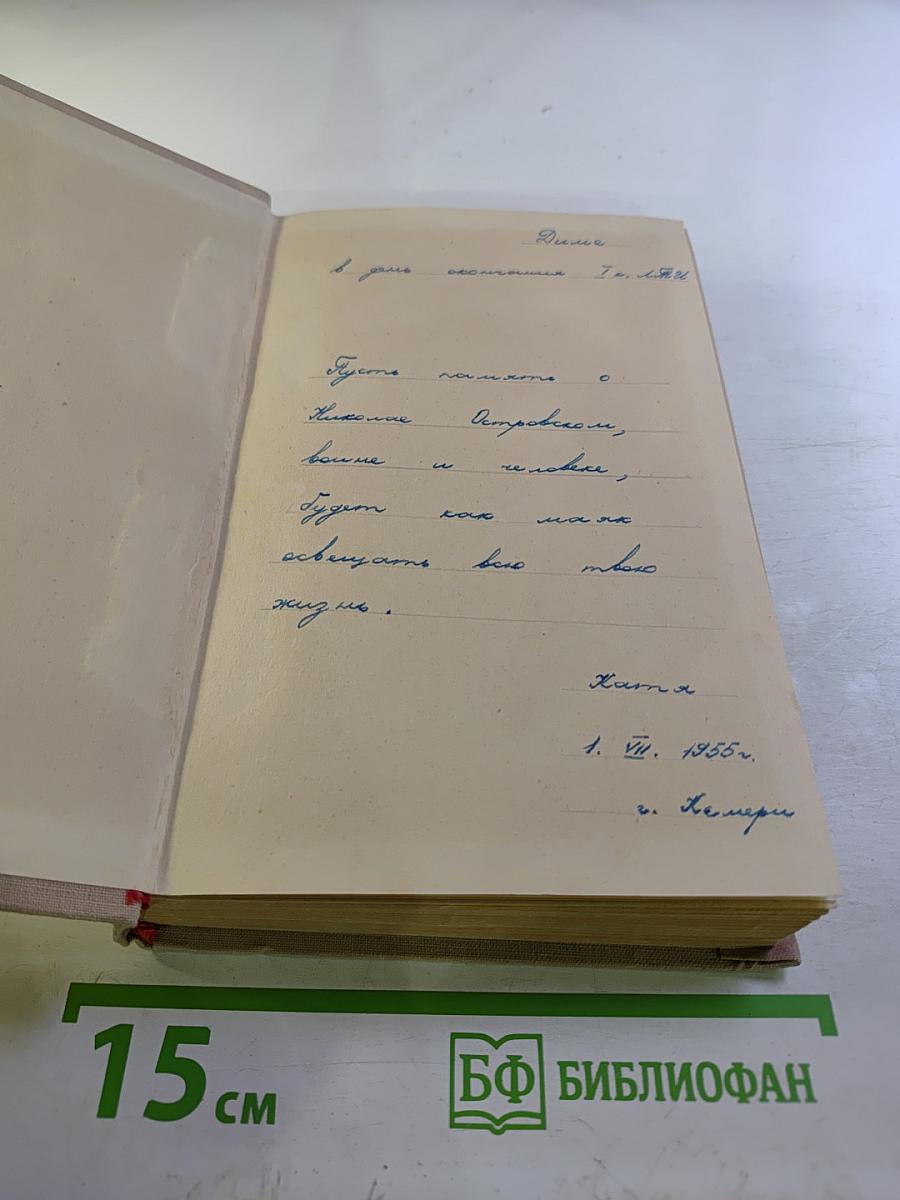 Диме
в день окончания I к. ЛТИ
Пусть память о
Николае Островском,
воине и человеке,
будет как маяк
освещать всю твою
жизнь.
Катя
1. VII. 1955 г.
г. Кемери
15 см
БФ БИБЛИОФАН